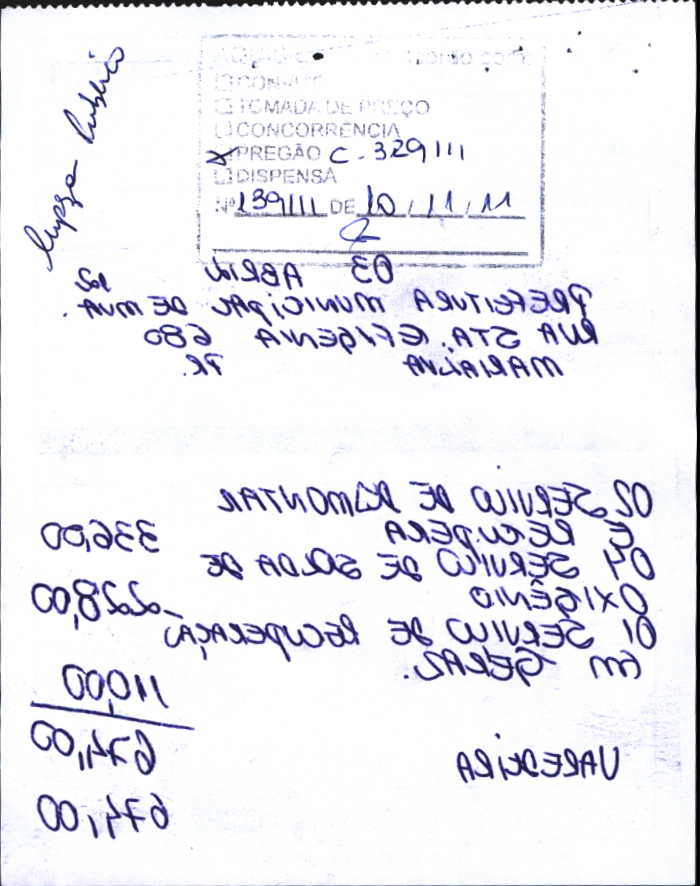 Limpeza Pública
CONVITE
TOMADA DE PREÇO
CONCORRÊNCIA
PREGÃO C. 329/11
DISPENSA
Nº 139/11 DE 10/11/11
03 ABRIL
PREFEITURA MUNICIPAL DE MVA.
RUA STA. EFIGENIA 680
MARIALVA PR.
02 SERVIÇO DE
E RECUPERA 336,00
04 SERVIÇO DE SOLDA DE
OXIGÊNIO 228,00
01 SERVIÇO DE RECUPERAÇÃ
EM GERAL.
110,00
674,00
VAREDEIRA
674,00